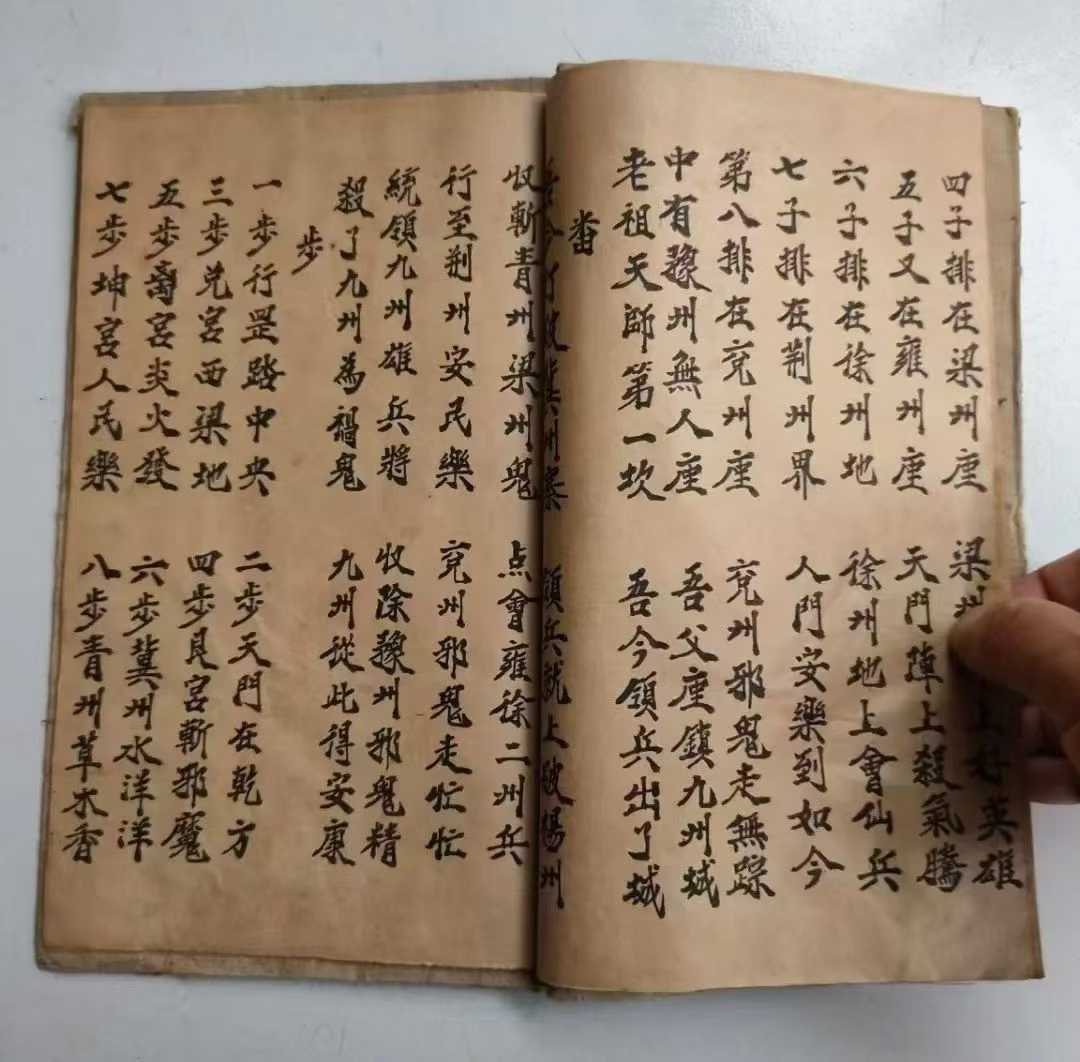 四子排在梁州座 梁州上好英雄
五子又在雍州座 天門陣上殺氣騰
六子排在徐州地 徐州地上會仙兵
七子排在荆州界 人門安樂到如今
第八排在兗州座 兗州邪鬼走無踪
中有豫州無人座 吾父座鎮九州城
老祖天師第一坎 吾今領兵出了城
畨
吾今了收冀州寨 領兵就上破楊州
收斬青州梁州鬼 点會雍徐二州兵
行至荆州安民樂 兗州邪鬼走忙忙
統領九州雄兵將 收除豫州邪鬼精
殺了九州為禍鬼 九州從此得安康
步
一步行罡踏中央 二步天門在乾方
三步兌宮西梁地 四步艮宮斬邪魔
五步离宮炎火發 六步冀州水洋洋
七步坤宮人民樂 八步青州草木香